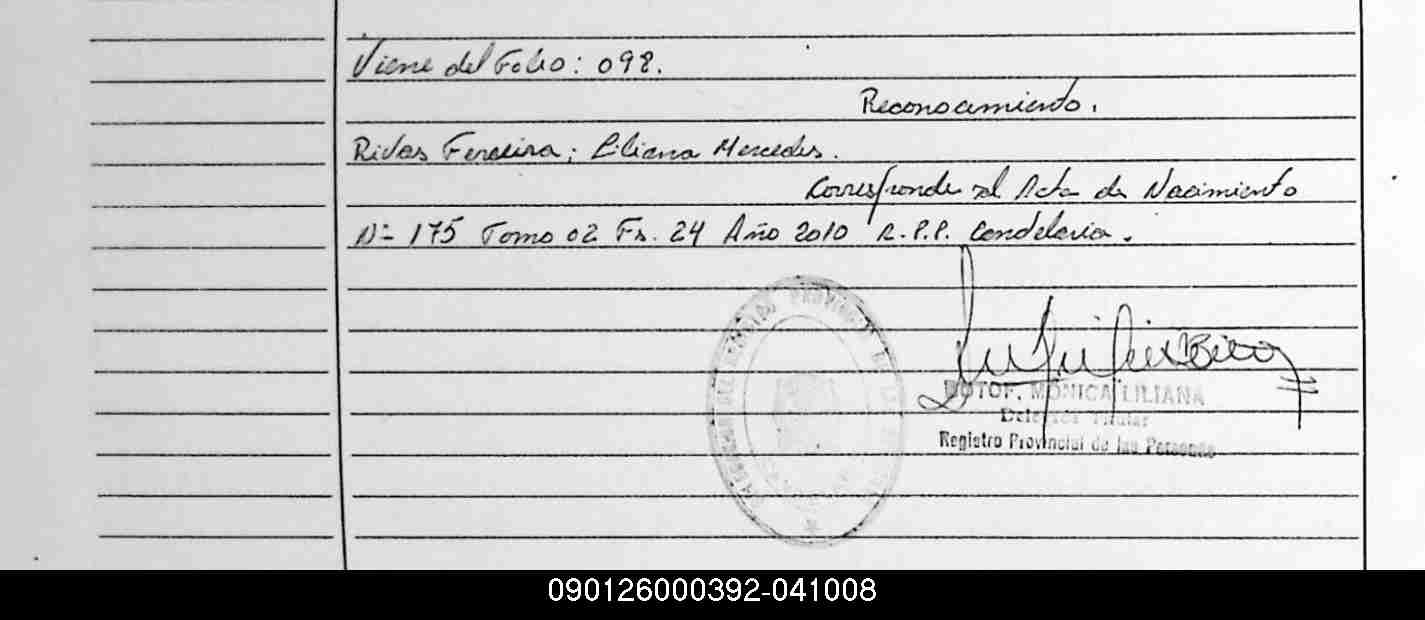 Viene del Folio: 098.
Reconocimiento.
Rivas Ferreira; Liliana Mercedes.
Corresponde al Acta de Nacimiento
Nº 175 Tomo 02 Fs. 24 Año 2010 R.P.P. Candelaria.
MONICA LILIANA
Titular
Registro Provincial de las Personas
090126000392-041008